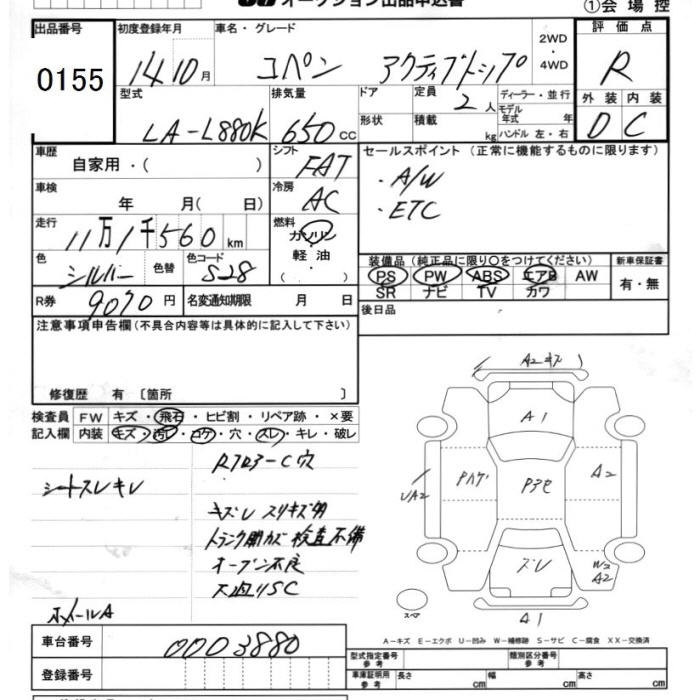 オークション出品申込書
①会場控
出品番号 初度登録年月 車名・グレード 評価点
0155 14 10月 コペン アクティブトップ 2WD・4WD R
型式 排気量 ドア 定員 ディーラー・並行 外装 内装
LA-L880K 650cc 形状 2人 積載 kg モデル年式 年 ハンドル 左・右 D C
車歴 自家用・( ) シフト FAT セールスポイント(正常に機能するものに限ります)
車検 年 月( 日) 冷房 AC ・A/W
・ETC
走行 11万1千560km 燃料 ガソリン・軽油・( )
色 シルバー 色替 色コード S28 装備品(純正品に限り〇をつけてください) 新車保証書
PS PW ABS エアB AW 有・無
SR ナビ TV カワ
R券 9070円 名変通知期限 月 日 後日品
注意事項申告欄(不具合内容等は具体的に記入して下さい)
修復歴 有〔箇所 〕
検査員記入欄 FW キズ・飛石・ヒビ割・リペア跡・×要
内装 キズ・汚レ・コゲ・穴・スレ・キレ・破レ
シートスレキレ
キズレ スリキズ多
トランク開カズ 検査不備
オープン不良
下廻りSC
ホイールA
A2キズ
A1
A2
UA2
Pハゲ
Pアセ
ズレ
W2
A2
A1
スペア
A-キズ E-エクボ U-凹み W-補修跡 S-サビ C-腐食 XX-交換済
車台番号 0003880
型式指定番号 参考 類別区分番号 参考
登録番号
車庫証明用参考 長さ cm 幅 cm 高さ cm